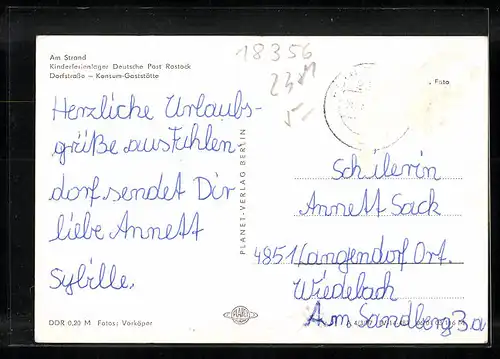 Am Strand
Kinderferienlager Deutsche Post Rostock
Dorfstraße – Konsum-Gaststätte
18356
23M
5-
Foto
Herzliche Urlaubs-
grüße aus Fuhlen
dorf sendet Dir
liebe Annett
Sybille.
PLANET-VERLAG BERLIN
Schülerin
Annett Sack
4851 Langendorf Ort.
Wiedebach
Am Sandberg 3a
DDR 0,20 M Fotos: Vorköper
PLANET